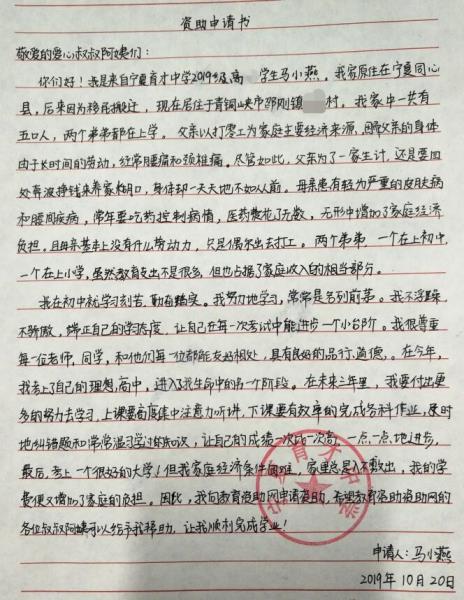 资助申请书
敬爱的爱心叔叔阿姨们：
你们好！我是来自宁夏育才中学2019级高 学生马小燕。我家原住在宁夏同心
县，后来因为移民搬迁，现在居住于青铜峡市邵刚镇 村。我家中一共有
五口人，两个弟弟都在上学。父亲以打零工为家庭主要经济来源，因父亲的身体
由于长时间的劳动，经常腰痛和颈椎痛。尽管如此，父亲为了一家生计，还是要四
处奔波挣钱来养家糊口，身体却一天天地不如从前。母亲患有较为严重的皮肤病
和腰间疾病，常年要吃药控制病情，医药费花了无数，无形中增加了家庭经济
负担，且母亲基本上没有什么劳动力，只是偶尔出去打工。两个弟弟，一个在上初中，
一个在上小学，虽然教育支出不是很多，但也占据了家庭收入的相当部分。
我在初中就学习刻苦，勤奋踏实。我努力地学习，常常是名列前茅。我不浮躁，
不骄傲，端正自己的学习态度，让自己在每一次考试中能进步一个小台阶。我很尊重
每一位老师，同学，和他们每一位都能友好相处，具有良好的品行、道德，。在今年，
我考上了自己的理想高中，进入了我生命中的另一个阶段。在未来三年里，我要付出更
多的努力去学习，上课要高度集中注意力听讲，下课要有效率的完成各科作业，及时
地纠错题和常常温习学过的知识，让自己的成绩一次比一次高，一点一点地进步，
最后，考上一个很好的大学！但我家庭经济条件困难，家里总是入不敷出，我的学
费便又增加了家庭的负担。因此，我向教育资助网申请资助，希望教育资助资助网的
各位叔叔阿姨可以给予我帮助，让我顺利完成学业！
申请人：马小燕
2019年10月20日
育才中学